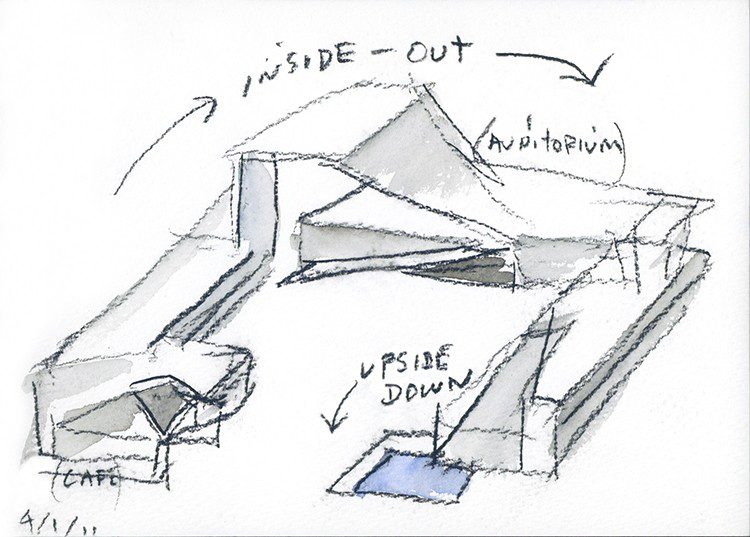 INSIDE - OUT
(AUDITORIUM)
UPSIDE
DOWN
(CAFE)
4/1/11